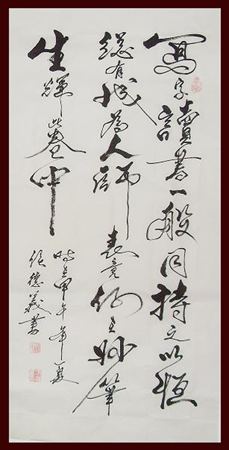 寫字讀書一般同持之以恒
總有成為人師表竟妙筆
生輝此卷中
時在甲午年夏
德義書